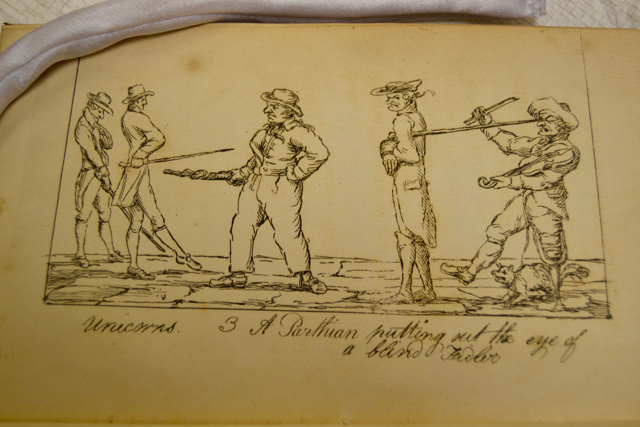 Unicorns. 3 A Parthian putting out the eye of
a blind Fidler